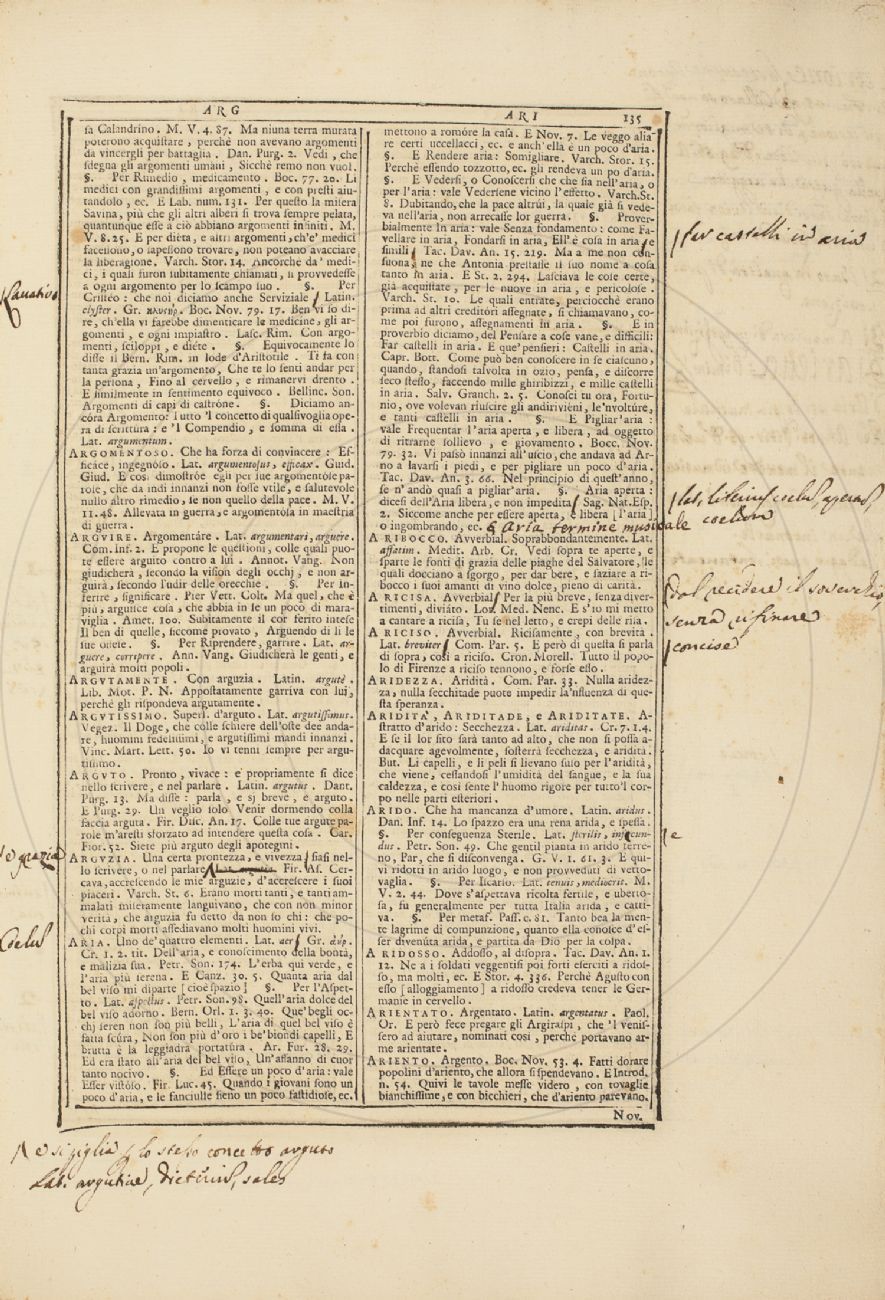 ARG
ARI 135
sa Calandrino. M. V. 4. 87. Ma niuna terra murata
poterono acquistare, perchè non avevano argomenti
da vincergli per battaglia. Dan. Purg. 2. Vedi, che
sdegna gli argomenti umani, Sicchè remo non vuol.
§. Per Rimedio, medicamento. Bocc. 77. 20. Li
medici con grandissimi argomenti, e con presti aiu-
tandolo, ec. E Lab. num. 131. Per questo la misera
Savina, più che gli altri alberi si trova sempre pelata,
quantunque esse a ciò abbiano argomenti infiniti. M.
V. 8. 25. E per dièta, e altri argomenti, ch'e' medici
facessono, o sapessono trovare, non poteano avacciare
la liberagione. Varch. Stor. 14. Ancorchè da' medi-
ci, i quali furon subitamente chiamati, si provvedesse
a ogni argomento per lo scampo suo. §. Per
Cristèo: che noi diciamo anche Serviziale Latin.
clyster. Gr. κλυςήρ. Boc. Nov. 79. 17. Ben vi so di-
re, ch'ella vi farebbe dimenticare le medicine, gli ar-
gomenti, e ogni impiastro. Lasc. Rim. Con argo-
menti, sciloppi, e diète. §. Equivocamente lo
disse il Bern. Rim. in lode d'Aristotile. Ti fa con
tanta grazia un'argomento, Che te lo senti andar per
la persona, Fino al cervello, e rimanervi drento.
E similmente in sentimento equivoco. Bellinc. Son.
Argomenti di capi di castròne. §. Diciamo an-
còra Argomento: Tutto 'l concetto di qualsivoglia ope-
ra di scrittura: e 'l Compendio, e somma di essa.
Lat. argumentum.
ARGOMENTOSO. Che ha forza di convincere: Ef-
ficàce, ingegnòso. Lat. argumentosus, efficax. Guid.
Giud. E così dimostròe egli per sue argomentòse pa-
role, che da indi innanzi non fosse vtile, e salutevole
nullo altro rimedio, se non quello della pace. M. V.
11. 48. Allevata in guerra, e argomentòsa in maestria
di guerra.
ARGVIRE. Argomentàre. Lat. argumentari, arguere.
Com. Inf. 2. E propone le questioni, colle quali puo-
te essere arguito contro a lui. Annot. Vang. Non
giudicherà, secondo la vision degli occhj, e non ar-
guirà, secondo l'udir delle orecchie. §. Per In-
ferire, significare. Pier Vett. Colt. Ma quel, che è
più, arguisce cosa, che abbia in se un poco di mara-
viglia. Amet. 100. Subitamente il cor ferito intese
Il ben di quelle, siccome provato, Arguendo di lì le
sue offese. §. Per Riprendere, garrire. Lat. ar-
guere, corripere. Ann. Vang. Giudicherà le genti, e
arguirà molti popoli.
ARGVTAMENTE. Con arguzia. Latin. argutè.
Lib. Mot. P. N. Appostatamente garriva con lui,
perchè gli rispondeva argutamente.
ARGVTISSIMO. Superl. d'arguto. Lat. argutissimus.
Vegez. Il Doge, che colle schiere dell'oste dee anda-
re, huomini fedelissimi, e argutissimi mandi innanzi.
Vinc. Mart. Lett. 50. Io vi tenni sempre per argu-
tissimo.
ARGVTO. Pronto, vivace: e propriamente si dice
nello scrivere, e nel parlare. Latin. argutus. Dant.
Purg. 13. Ma disse: parla, e sj breve, e arguto.
E Purg. 29. Un veglio solo Venir dormendo colla
faccia arguta. Fir. Disc. An. 17. Colle tue argute pa-
role m'aresti sforzato ad intendere questa cosa. Car.
Fior. 52. Siete più arguto degli apotegini.
ARGVZIA. Una certa prontezza, e vivezza siasi nel-
lo scrivere, o nel parlare Lat. argutia. Fir. As. Cer-
cava, accrescendo le mie arguzie, d'accrescere i suoi
piaceri. Varch. St. 6. Erano morti tanti, e tanti am-
malati miseramente languivano, che con non minor
verità, che arguzia fu detto da non so chi: che po-
chi corpi morti assediavano molti huomini vivi.
ARIA. Uno de' quattro elementi. Lat. aer Gr. ἀήρ.
Cr. 1. 2. tit. Dell'aria, e conoscimento della bontà,
e malizia sua. Petr. Son. 174. L'erba qui verde, e
l'aria più serena. E Canz. 30. 5. Quanta aria dal
bel viso mi diparte [cioè spazio] §. Per l'Aspet-
to. Lat. aspectus. Petr. Son. 98. Quell'aria dolce del
bel viso adorno. Bern. Orl. 1. 3. 40. Que'begli oc-
chj seren non son più belli, L'aria di quel bel viso è
fatta scùra, Non son più d'oro i be'biondi capelli, E
brutta è la leggiadra portatùra. Ar. Fur. 28. 29.
Ed era stato all'aria del bel viso, Un'affanno di cuor
tanto nocivo. §. Ed Essere un poco d'aria: vale
Esser vistòso. Fir. Luc. 45. Quando i giovani sono un
poco d'aria, e le fanciulle sieno un poco fastidiose, ec.
mettono a romòre la casa. E Nov. 7. Le veggo alia-
re certi uccellacci, ec. e anch'ella è un poco d'aria.
§. E Rendere aria: Somigliare. Varch. Stor. 15.
Perchè essendo tozzotto, ec. gli rendeva un po d'aria.
§. E Vedersi, o Conoscersi che che sia nell'aria, o
per l'aria: vale Vedersene vicino l'effetto. Varch. St.
8. Dubitando, che la pace altrùi, la quale già si vede-
va nell'aria, non arrecasse lor guerra. §. Prover-
bialmente In aria: vale Senza fondamento: come Fa-
vellare in aria, Fondarsi in aria, Ell' è cosa in aria e
simili Tac. Dav. An. 15. 219. Ma a me non con-
suona, ne che Antonia prestasse il suo nome a cosa
tanto in aria. E St. 2. 294. Lasciava le cose certe,
già acquistate, per le nuove in aria, e pericolose.
Varch. St. 10. Le quali entrate, perciocchè erano
prima ad altri creditòri assegnate, si chiamavano, co-
me poi furono, assegnamenti in aria. §. E in
proverbio diciamo, del Pensare a cose vane, e difficili:
Far castelli in aria. E que'pensieri: Castelli in aria.
Capr. Bott. Come può ben conoscere in se ciascuno,
quando, standosi talvolta in ozio, pensa, e discorre
seco stesso, faccendo mille ghiribizzi, e mille castelli
in aria. Salv. Granch. 2. 5. Conosci tu ora, Fortu-
nio, ove volevan riuscire gli andirivièni, le'nvoltùre,
e tanti castelli in aria. §. E Pigliar'aria:
vale Frequentar l'aria aperta, e libera, ad oggetto
di ritrarne sollievo, e giovamento. Bocc. Nov.
79. 32. Vi passò innanzi all'uscio, che andava ad Ar-
no a lavarsi i piedi, e per pigliare un poco d'aria.
Tac. Dav. An. 3. 66. Nel principio di quest'anno,
se n'andò quasi a pigliar'aria. §. Aria aperta:
dicesi dell'Aria libera, e non impedita Sag. Nat. Esp.
2. Siccome anche per essere aperta, e libera [l'aria]
o ingombrando, ec. § Aria termine musicale
A RIBOCCO. Avverbial. Soprabbondantemente. Lat.
affatim. Medit. Arb. Cr. Vedi sopra te aperte, e
sparte le fonti di grazia delle piaghe del Salvatore, le
quali docciano a sgorgo, per dar bere, e saziare a ri-
bocco i suoi amanti di vino dolce, pieno di carità.
A RICISA. Avverbial Per la più breve, senza diver-
timenti, diviàto. Lor. Med. Nenc. E s'io mi metto
a cantare a ricisa, Tu se nel letto, e crepi delle risa.
A RICISO. Avverbial. Ricisamente, con brevità.
Lat. breviter Com. Par. 5. E però di questa si parla
di sopra, così a riciso. Cron. Morell. Tutto il popo-
lo di Firenze a riciso tennono, e forse ello.
ARIDEZZA. Aridità. Com. Par. 33. Nulla aridez-
za, nulla secchitade puote impedir la'nfluenza di que-
sta speranza.
ARIDITA', ARIDITADE, e ARIDITATE. A-
stratto d'arido: Secchezza. Lat. ariditas. Cr. 7. 1. 4.
E se il lor sito sarà tanto ad alto, che non si possa a-
dacquare agevolmente, sosterrà secchezza, e aridità.
But. Li capelli, e li peli si lievano suso per l'aridità,
che viene, cessandosi l'umidità del sangue, e la sua
caldezza, e così sente l'huomo rigore per tutto'l cor-
po nelle parti esteriori.
ARIDO. Che ha mancanza d'umore. Latin. aridus.
Dan. Inf. 14. Lo spazzo era una rena arida, e spessa.
§. Per conseguenza Sterile. Lat. sterilis, infecun-
dus. Petr. Son. 49. Che gentil pianta in arido terre-
no, Par, che si disconvenga. G. V. 1. 61. 3. E qui-
vi ridotti in arido luogo, e non provveduti di vetto-
vaglia. §. Per Iscarso. Lat. tenuis, mediocris. M.
V. 2. 44. Dove s'aspettava ricolta fertile, e uberto-
sa, fu generalmente per tutta Italia arida, e catti-
va. §. Per metaf. Pass. c. 81. Tanto bea la men-
te lagrime di compunzione, quanto ella conosce d'es-
ser divenùta arida, e partita da Dio per la colpa.
A RIDOSSO. Addosso, al disopra. Tac. Dav. An. 1.
12. Ne a i soldati veggentisi poi forti eserciti a ridos-
so, ma molti, ec. E Stor. 4. 336. Perchè Agusto con
esso [alloggiamento] a ridosso credeva tener le Ger-
manie in cervello.
ARIENTATO. Argentato. Latin. argentatus. Paol.
Or. E però fece pregare gli Argiraspi, che 'l venis-
sero ad aiutare, nominati così, perchè portavano ar-
me arientate.
ARIENTO. Argento. Boc. Nov. 53. 4. Fatti dorare
popolini d'ariento, che allora si spendevano. E Introd.
n. 54. Quivi le tavole messe videro, con tovaglie
bianchissime, e con bicchieri, che d'ariento parevano.
Nov.
far castelli in aria
coelum
dal recidere il soverchio,
senza rifinare
concise
e
e grazia
e si piglia p lo stesso concetto arguto
Lat. argutiae, dicterium, sales